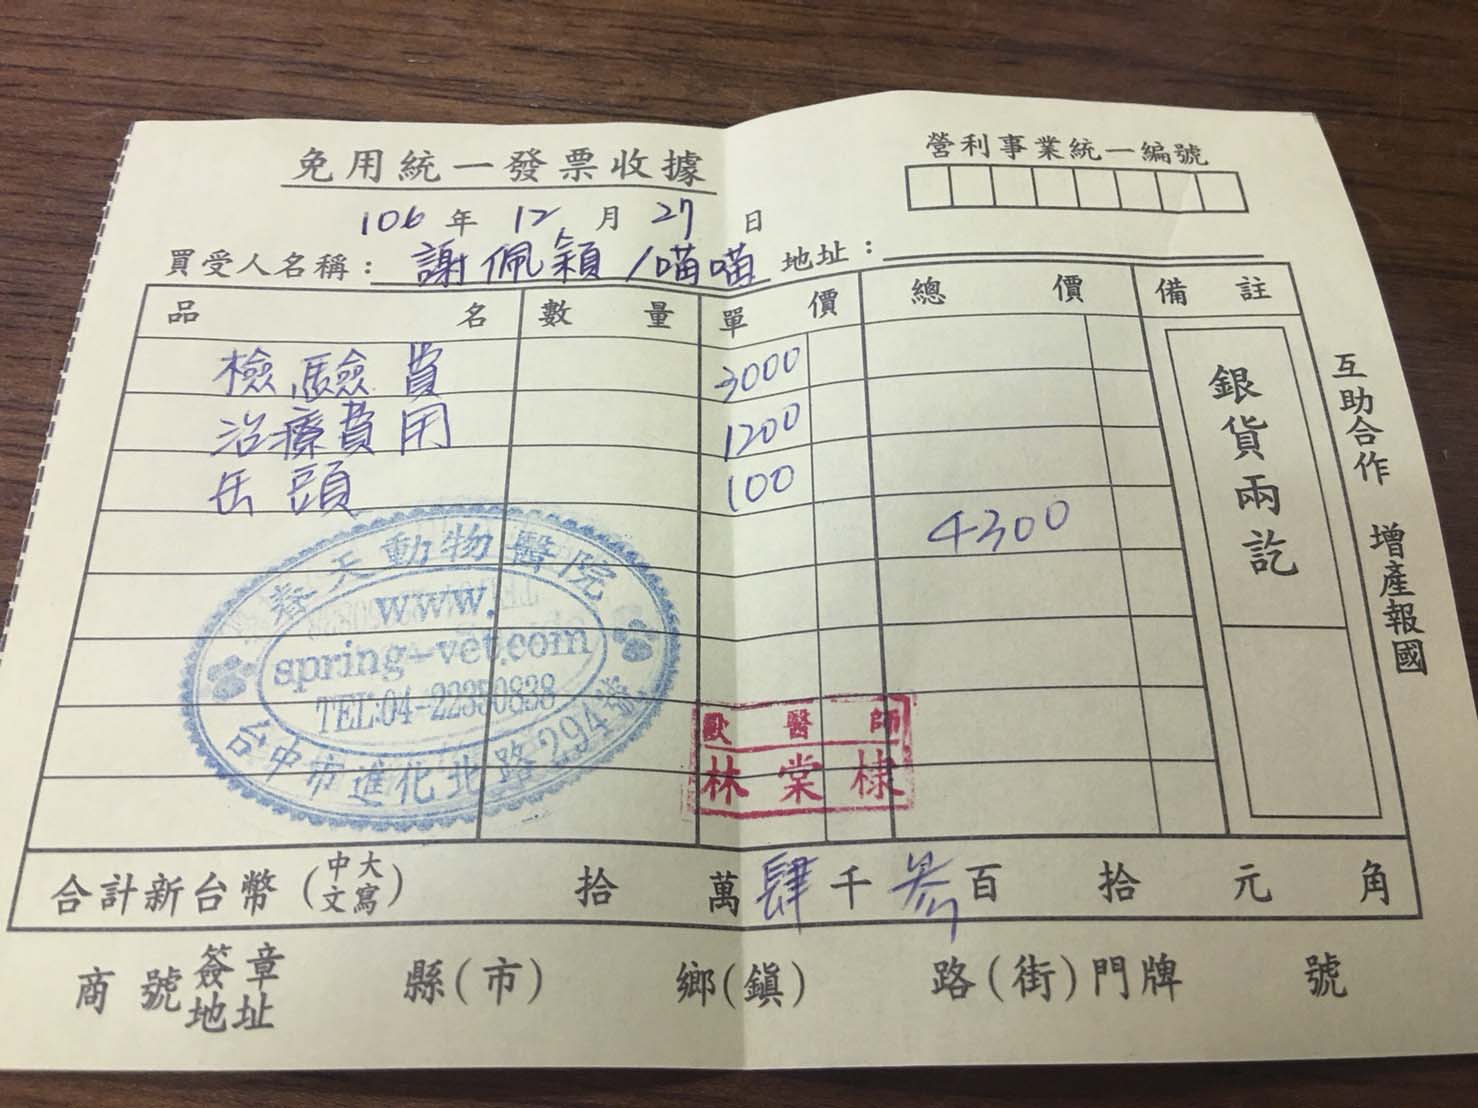 免用統一發票收據
營利事業統一編號
106 年 12 月 27 日
買受人名稱：謝佩穎/喵喵 地址：
品名 數量 單價 總價 備註
檢驗費 3000
治療費用 1200
缶頭 100
4300
銀貨兩訖
互助合作 增產報國
春天動物醫院
www.
spring-vet.com
TEL:04-22350838
台中市進化北路294號
獸醫師
林棠棣
合計新台幣(中文大寫) 拾 萬 肆 千 參 百 拾 元 角
商號簽章地址 縣(市) 鄉(鎮) 路(街)門牌 號